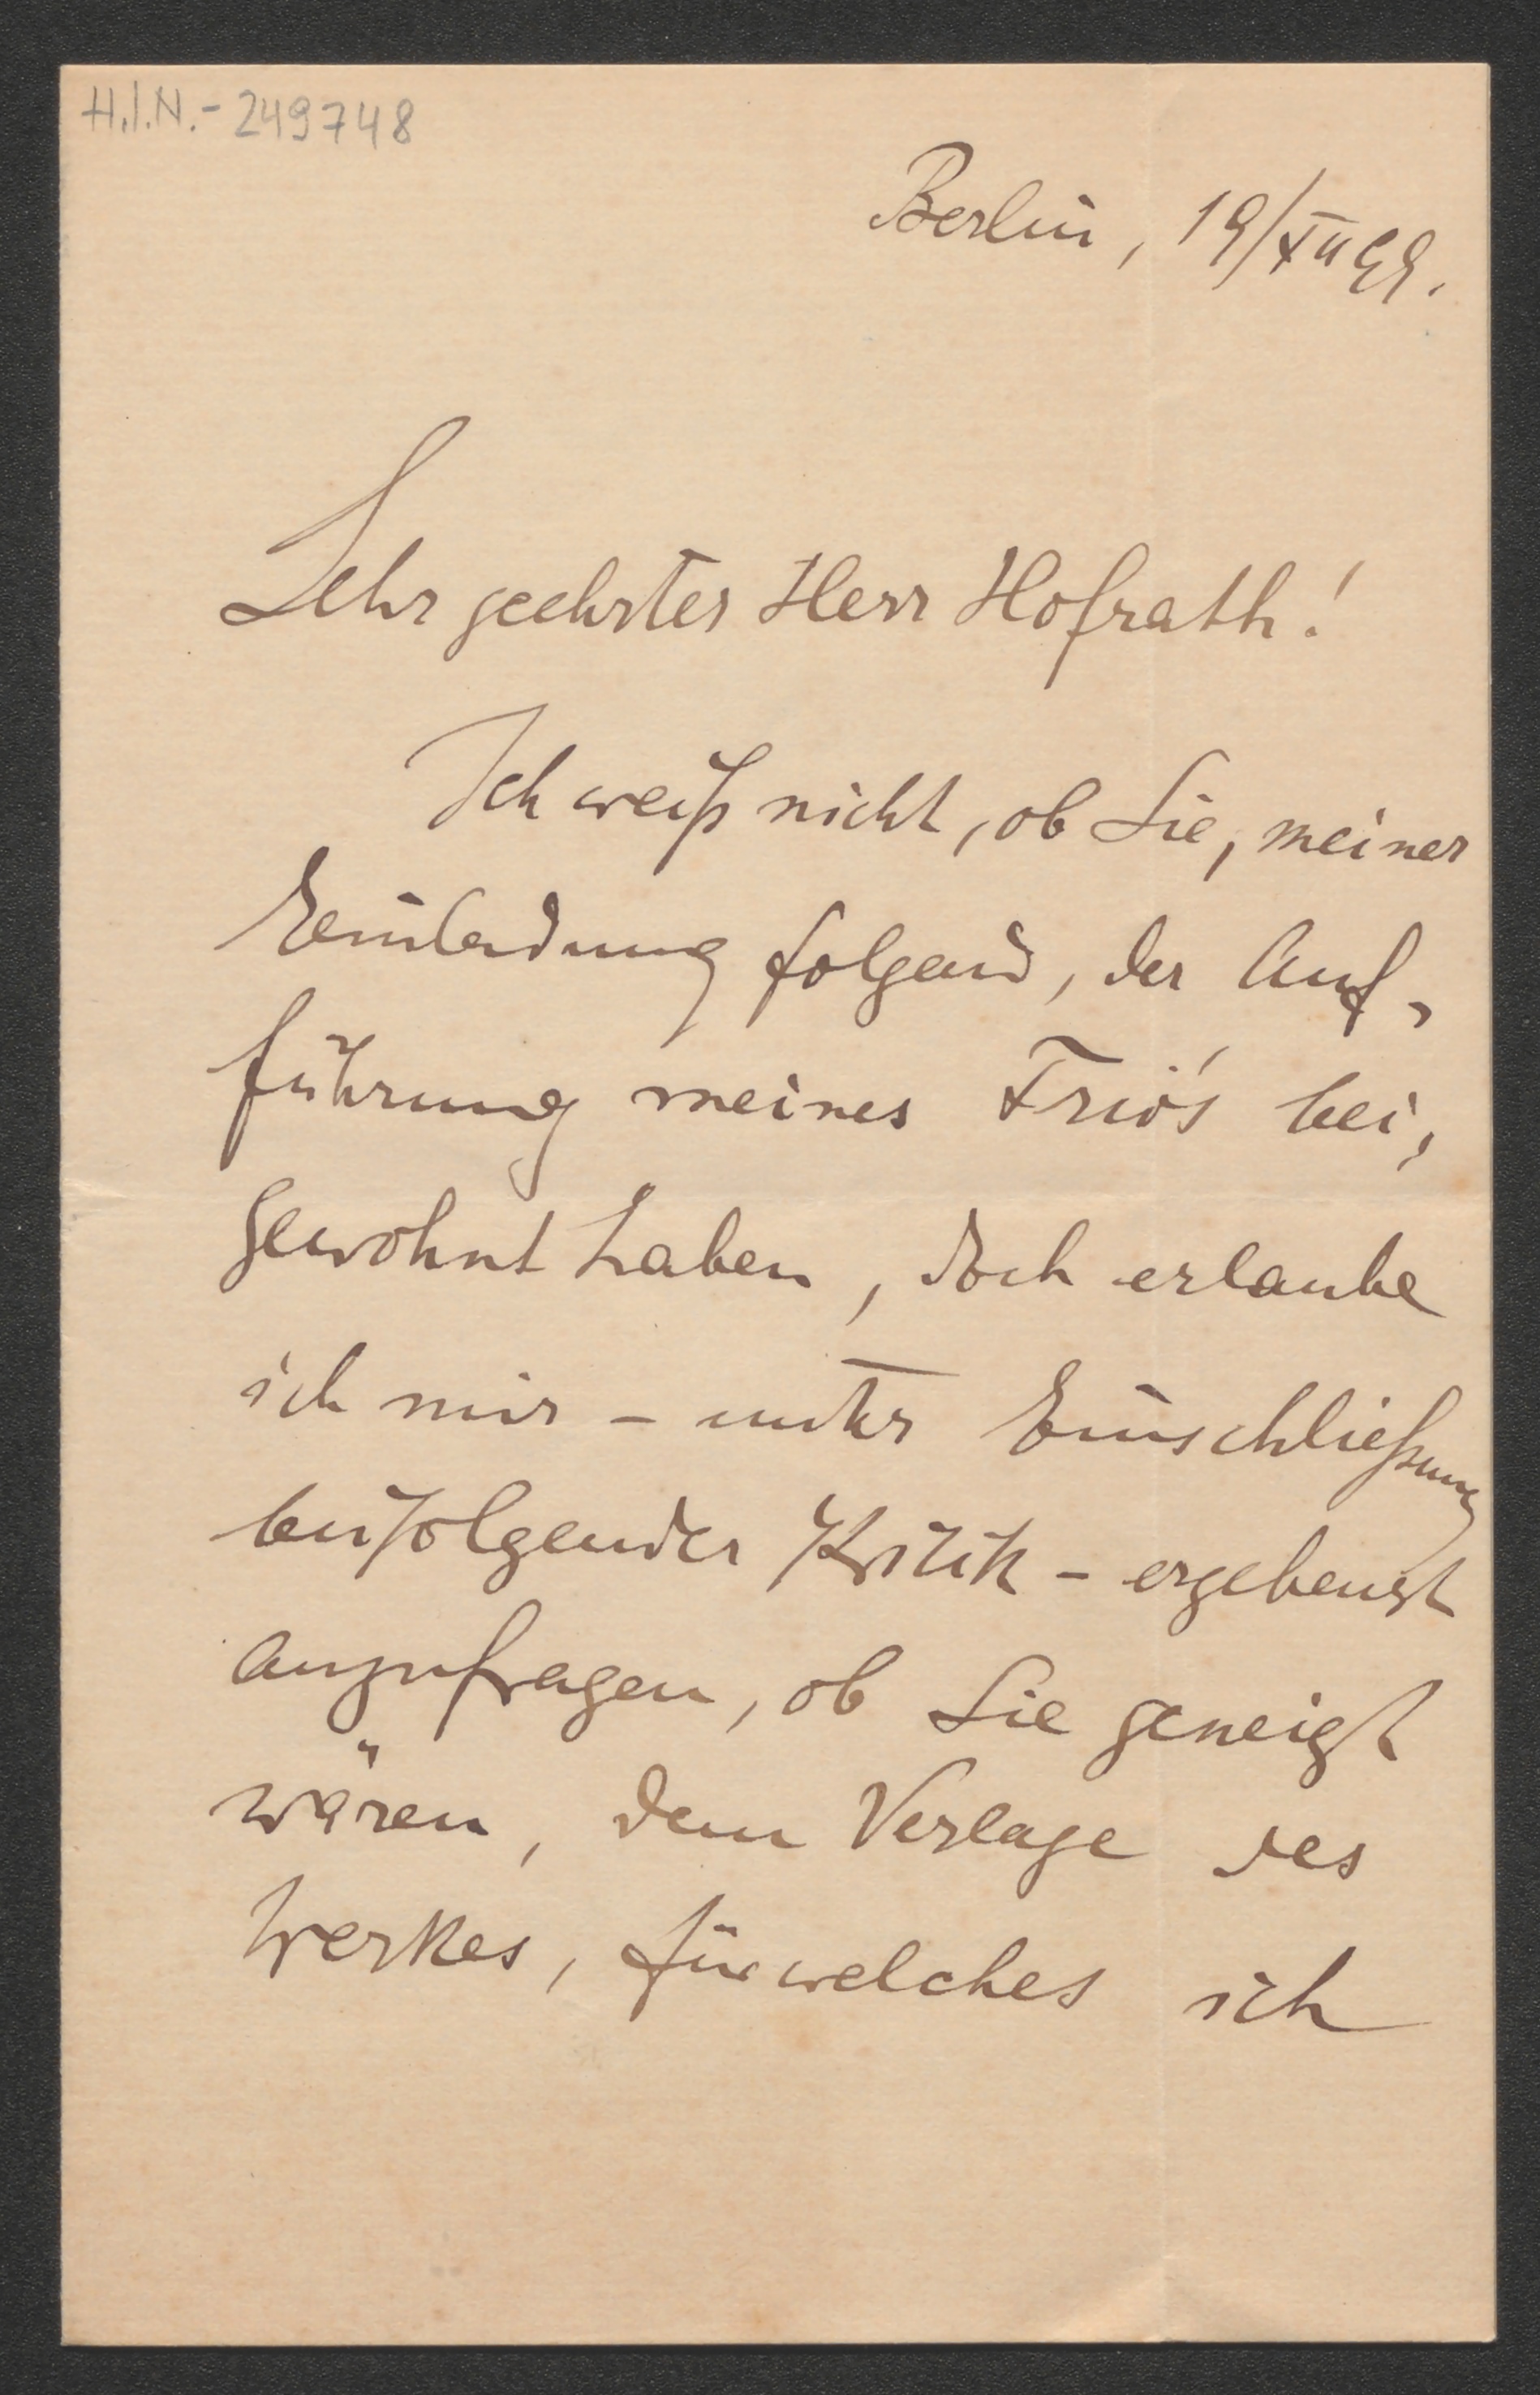 H.I.N.-249748
Berlin, 19/XII 99.
Sehr geehrter Herr Hofrath!
Ich weiß nicht, ob Sie, meiner
Einladung folgend, der Auf,
führung meines Trio's bei,
gewohnt haben, doch erlaube
ich mir – unter Einschließung
beifolgender Kritik – ergebenst
anzufragen, ob Sie geneigt
wären, dem Verlage des
Werkes, für welches ich